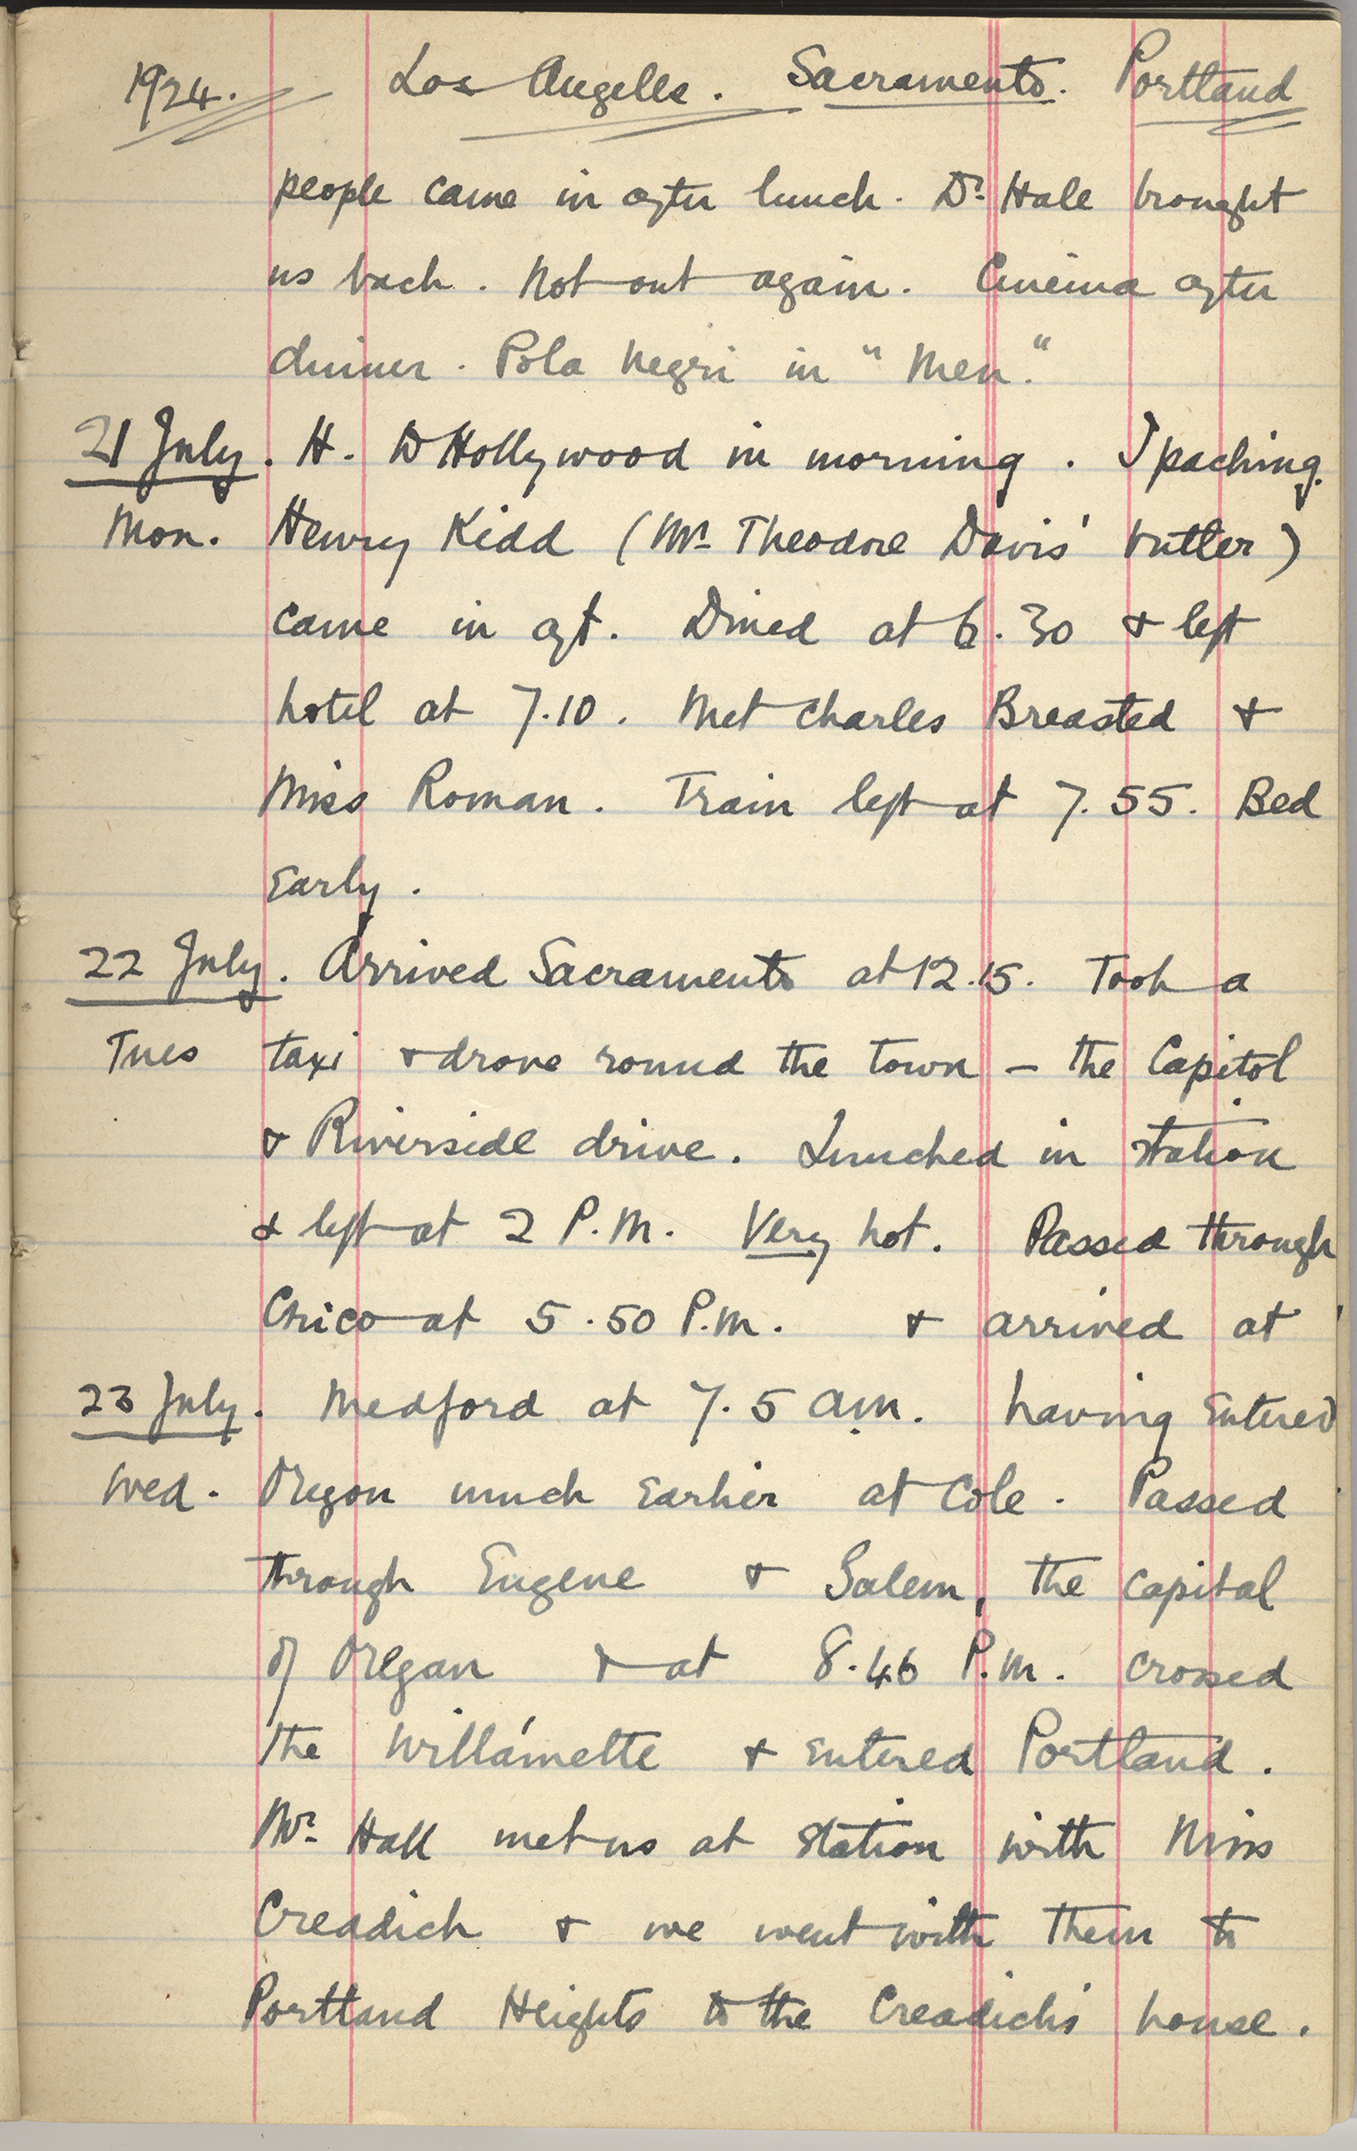 1924. Los Angeles. Sacramento. Portland
people came in after lunch. Dr. Hale brought
us back. Not out again. Cinema after
dinner. Pola Negri in "Men."
21 July. H. to Hollywood in morning. I packing.
Mon. Henry Kidd (Mr. Theodore Davis' butler)
came in aft. Dined at 6.30 & left
hotel at 7.10. Met Charles Breasted &
Miss Roman. Train left at 7.55. Bed
early.
22 July. Arrived Sacramento at 12.15. Took a
Tues taxi & drove round the town – the Capitol
& Riverside drive. Lunched in station
& left at 2 P.M. Very hot. Passed through
Chico at 5.50 P.M. & arrived at
23 July. Medford at 7.5 a.m. having entered
Wed. Oregon much earlier at Cole. Passed
through Eugene & Salem, the capital
of Oregan & at 8.46 P.M. crossed
the Willámette & entered Portland.
Mr. Hall met us at station with Miss
Creadick & we went with them to
Portland Heights to the Creadicks' house.